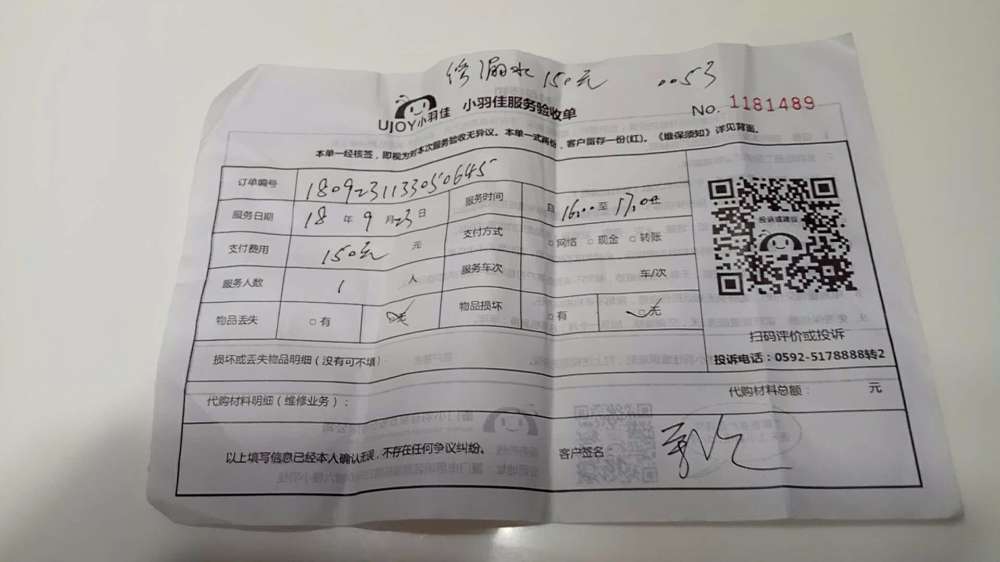 修漏水 150元 0053
UJOY小羽佳 小羽佳服务验收单 No. 1181489
本单一经核签，即视为对本次服务验收无异议。本单一式两份，客户留存一份(红)。《维保须知》详见背面。
订单编号 1809231133050645
服务时间 自 16:00 至 17:00
服务日期 18 年 9 月 23 日
支付方式 □网络 □现金 □转账
支付费用 150元 元
服务车次 车/次
服务人数 1 人
物品损坏 □有 □无
物品丢失 □有 □无
投诉或建议
扫码评价或投诉
投诉电话：0592-5178888转2
损坏或丢失物品明细（没有可不填）
代购材料明细（维修业务）：
代购材料总额： 元
以上填写信息已经本人确认无误，不存在任何争议纠纷。
客户签名：